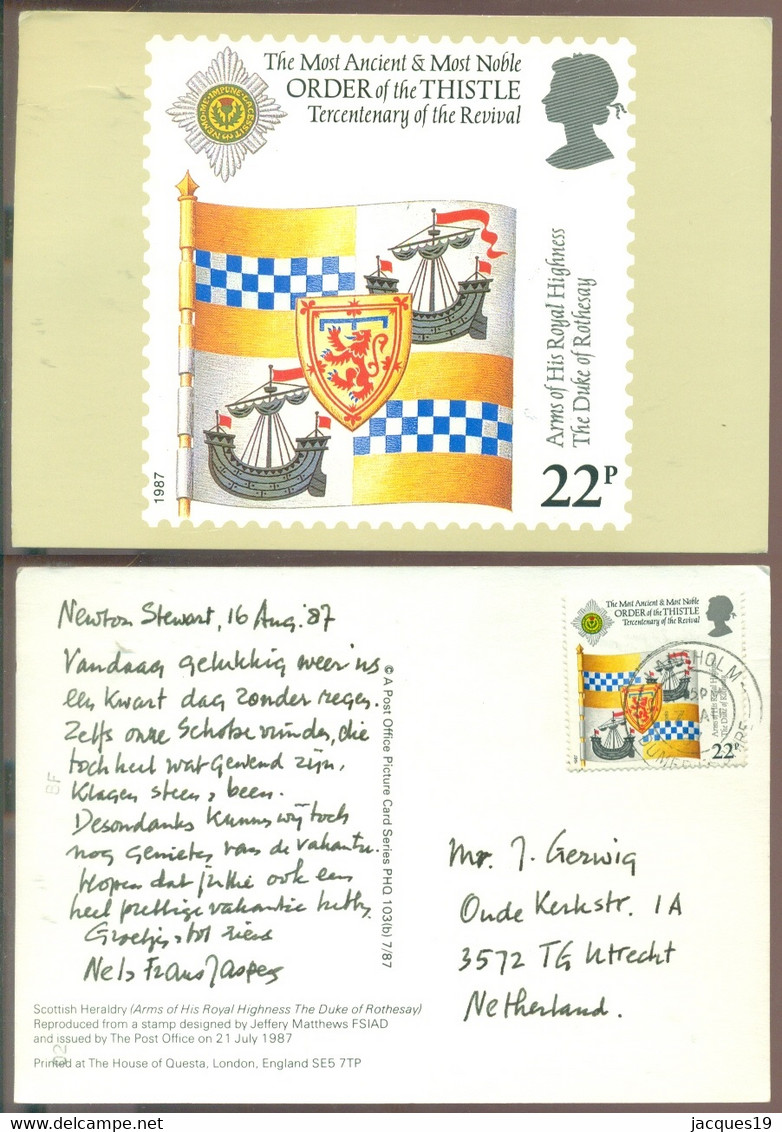 The Most Ancient & Most Noble
ORDER of the THISTLE
Tercentenary of the Revival
NEMO·ME·IMPUNE·LACESSIT
Arms of His Royal Highness
The Duke of Rothesay
1987
22P
Newton Stewart, 16 Aug. '87
Vandaag gelukkig weer 'ns
een kwart dag zonder regen.
Zelfs onze Schotse vrienden, die
toch heel wat gewend zijn,
klagen steen & been.
Desondanks kunnen wij toch
nog genieten van de vakantie.
Hopen dat jullie ook een
heel prettige vakantie hebben.
Groetjes & tot ziens
Nels Frans Jaspers
© A Post Office Picture Card Series PHQ 103(b) 7/87
The Most Ancient & Most Noble
ORDER of the THISTLE
Tercentenary of the Revival
Arms of His Royal Highness
The Duke of Rothesay
22P
Mr. J. Gerwig
Oude Kerkstr. 1A
3572 TG Utrecht
Netherland.
Scottish Heraldry (Arms of His Royal Highness The Duke of Rothesay)
Reproduced from a stamp designed by Jeffery Matthews FSIAD
and issued by The Post Office on 21 July 1987
Printed at The House of Questa, London, England SE5 7TP
jacques19